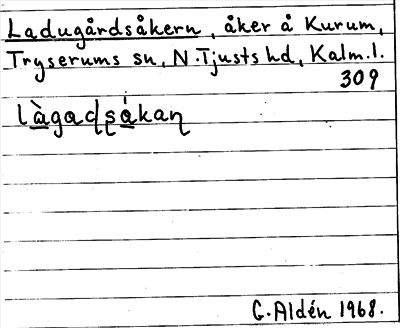 Ladugårdsåkern, åker å Kurum,
Tryserums sn, N. Tjusts hd, Kalm. l.
309
là̱gaɖʂá̱kaɳ
G. Aldén 1968.